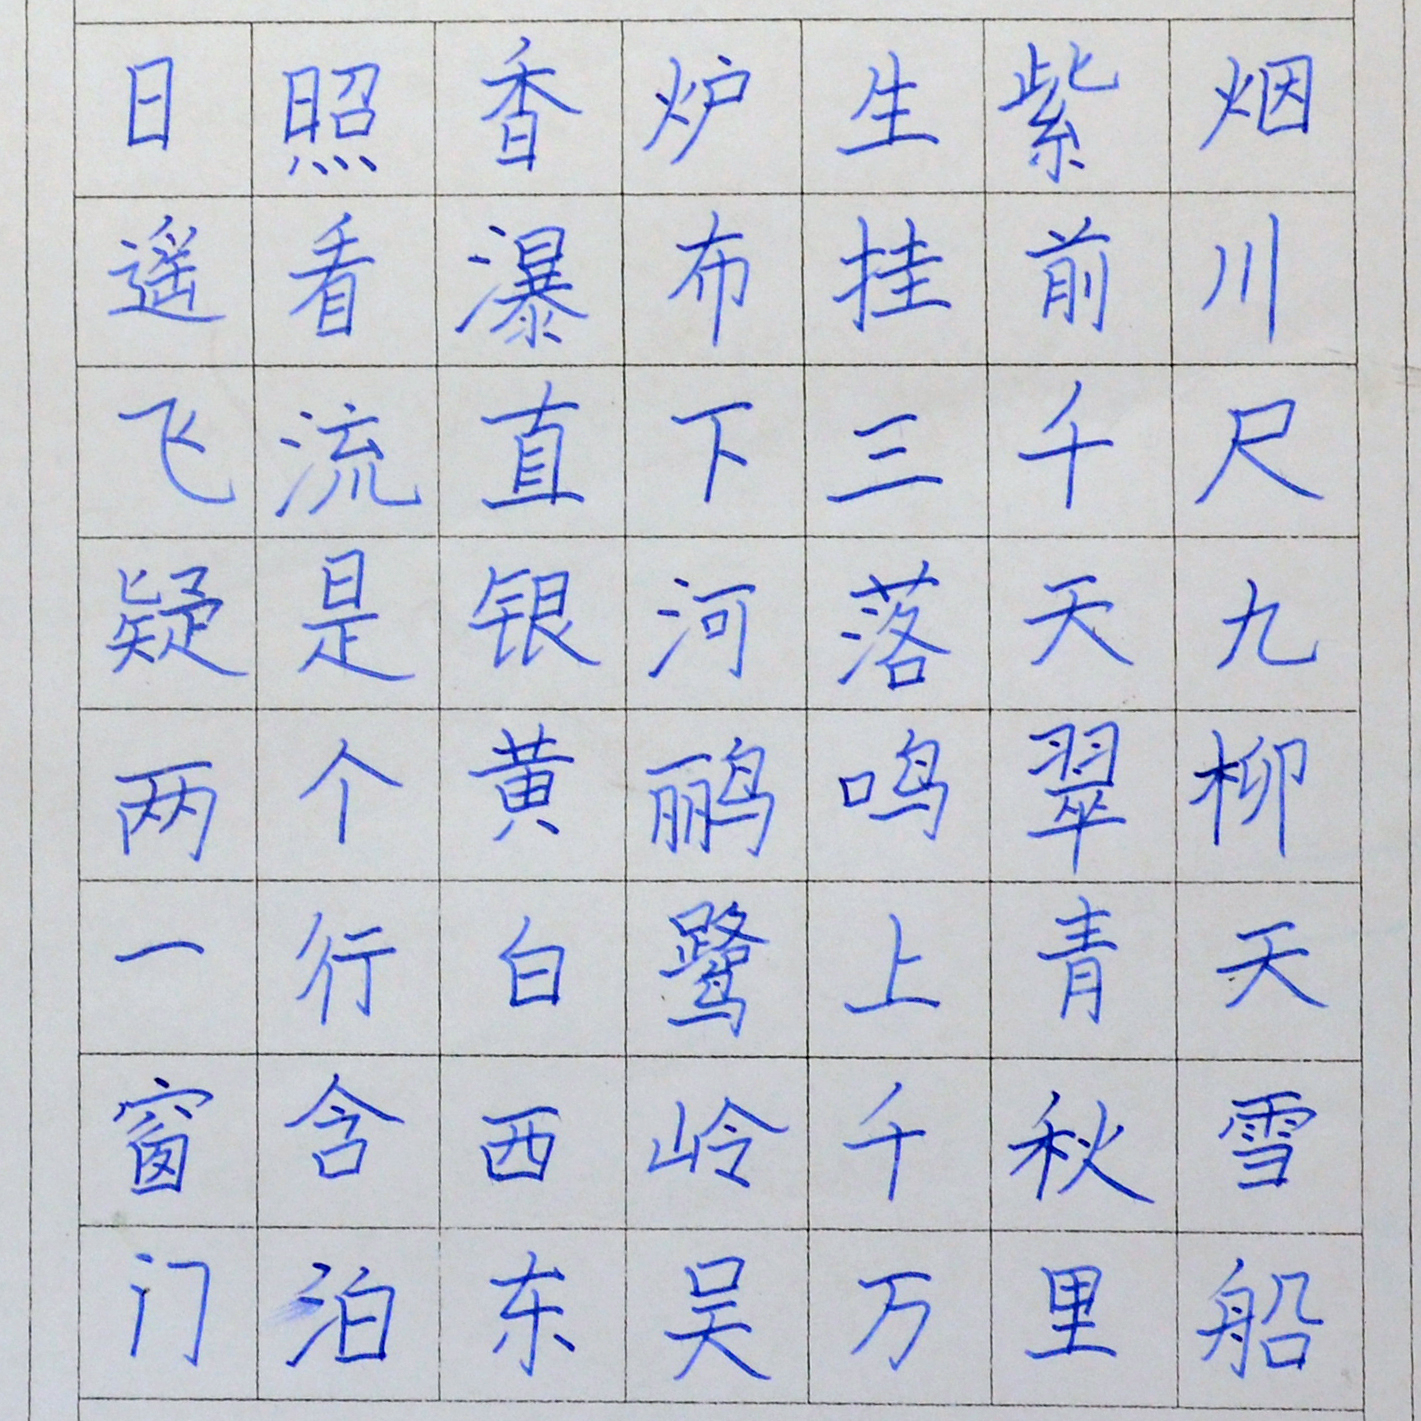 日照香炉生紫烟
遥看瀑布挂前川
飞流直下三千尺
疑是银河落天九
两个黄鹂鸣翠柳
一行白鹭上青天
窗含西岭千秋雪
门泊东吴万里船